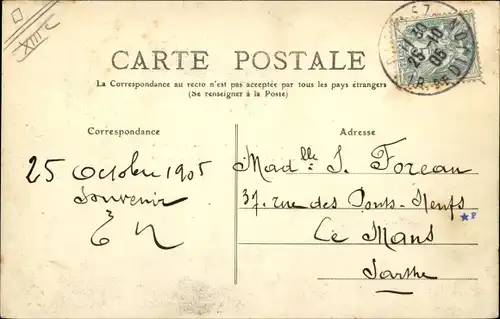 XIIIe
CARTE POSTALE
La Correspondance au recto n'est pas acceptée par tous les pays étrangers
(Se renseigner à la Poste)
Correspondance
Adresse
25 Octobre 1905
Souvenir
Madlle J. Foreau
37. rue des Ponts-Neufs
Le Mans
Sarthe